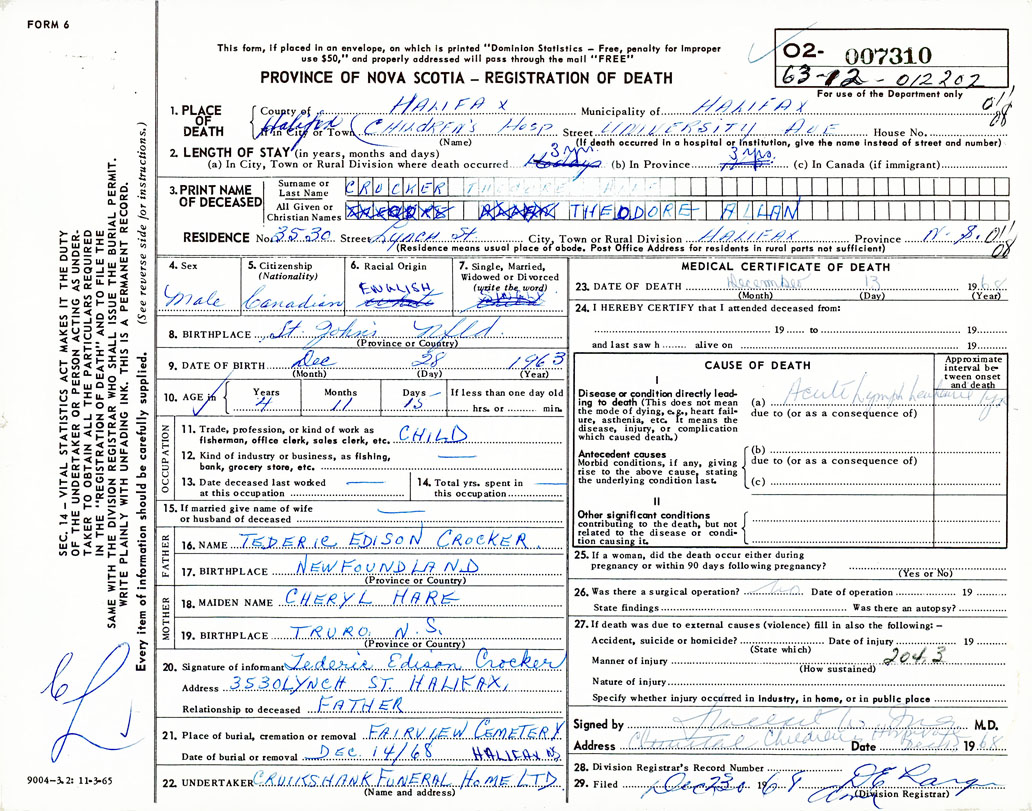 FORM 6
This form, if placed in an envelope, on which is printed "Dominion Statistics – Free, penalty for improper
use $50," and properly addressed will pass through the mail "FREE"
PROVINCE OF NOVA SCOTIA – REGISTRATION OF DEATH
O2- 007310
63-12-012202
For use of the Department only
01/
08
1. PLACE OF DEATH
County of HALIFAX Municipality of HALIFAX
Halifax If in City or Town CHILDREN'S HOSP Street UNIVERSITY AVE House No.
(Name) (If death occurred in a hospital or institution, give the name instead of street and number)
2. LENGTH OF STAY (in years, months and days)
(a) In City, Town or Rural Division where death occurred 3 yrs (b) In Province 3 yrs. (c) In Canada (if immigrant)
3. PRINT NAME OF DECEASED
Surname or Last Name CROCKER THEODORE
All Given or Christian Names THEODORE ALLAN
RESIDENCE No. 3530 Street Lynch St City, Town or Rural Division HALIFAX Province N.S. 01/
08
(Residence means usual place of abode. Post Office Address for residents in rural parts not sufficient)
4. Sex
Male
5. Citizenship
(Nationality)
Canadian
6. Racial Origin
ENGLISH
7. Single, Married,
Widowed or Divorced
(write the word)
SINGLE
8. BIRTHPLACE St. John's Nfld.
(Province or Country)
9. DATE OF BIRTH Dec 28 1963
(Month) (Day) (Year)
10. AGE in
Years Months Days If less than one day old
4 11 15 hrs. or min.
OCCUPATION
11. Trade, profession, or kind of work as
fisherman, office clerk, sales clerk, etc. CHILD
12. Kind of industry or business, as fishing,
bank, grocery store, etc.
13. Date deceased last worked
at this occupation
14. Total yrs. spent in
this occupation
15. If married give name of wife
or husband of deceased
FATHER
16. NAME TEDERIC EDISON CROCKER
17. BIRTHPLACE NEWFOUNDLAND
(Province or Country)
MOTHER
18. MAIDEN NAME CHERYL HARE
19. BIRTHPLACE TRURO, N.S.
(Province or Country)
20. Signature of informant Tederic Edison Crocker
Address 3530 LYNCH ST. HALIFAX,
Relationship to deceased FATHER
21. Place of burial, cremation or removal FAIRVIEW CEMETERY
Date of burial or removal DEC. 14/68 HALIFAX NS
22. UNDERTAKER CRUIKSHANK FUNERAL HOME LTD
(Name and address)
MEDICAL CERTIFICATE OF DEATH
23. DATE OF DEATH December 13 1968
(Month) (Day) (Year)
24. I HEREBY CERTIFY that I attended deceased from:
19 to 19
and last saw h alive on 19
CAUSE OF DEATH
Approximate
interval be-
tween onset
and death
I
Disease or condition directly lead-
ing to death (This does not mean
the mode of dying, e.g., heart fail-
ure, asthenia, etc. It means the
disease, injury, or complication
which caused death.)
(a) Acute Lymph
due to (or as a consequence of)
Antecedent causes
Morbid conditions, if any, giving
rise to the above cause, stating
the underlying condition last.
(b)
due to (or as a consequence of)
(c)
II
Other significant conditions
contributing to the death, but not
related to the disease or condi-
tion causing it.
25. If a woman, did the death occur either during
pregnancy or within 90 days following pregnancy?
(Yes or No)
26. Was there a surgical operation? no Date of operation 19
State findings Was there an autopsy?
27. If death was due to external causes (violence) fill in also the following: –
Accident, suicide or homicide? Date of injury 19
(State which)
Manner of injury 204.3
(How sustained)
Nature of injury
Specify whether injury occurred in Industry, in home, or in public place
Signed by M.D.
Address Children's Date 1968
28. Division Registrar's Record Number
29. Filed Dec 23 1968
(Division Registrar)
SEC. 14 – VITAL STATISTICS ACT MAKES IT THE DUTY
OF THE UNDERTAKER OR PERSON ACTING AS UNDER-
TAKER TO OBTAIN ALL THE PARTICULARS REQUIRED
IN THE "REGISTRATION OF DEATH" AND TO FILE THE
SAME WITH THE DIVISION REGISTRAR WHO SHALL ISSUE THE BURIAL PERMIT.
WRITE PLAINLY WITH UNFADING INK. THIS IS A PERMANENT RECORD.
Every item of information should be carefully supplied. (See reverse side for instructions.)
9004-3.2: 11-3-65